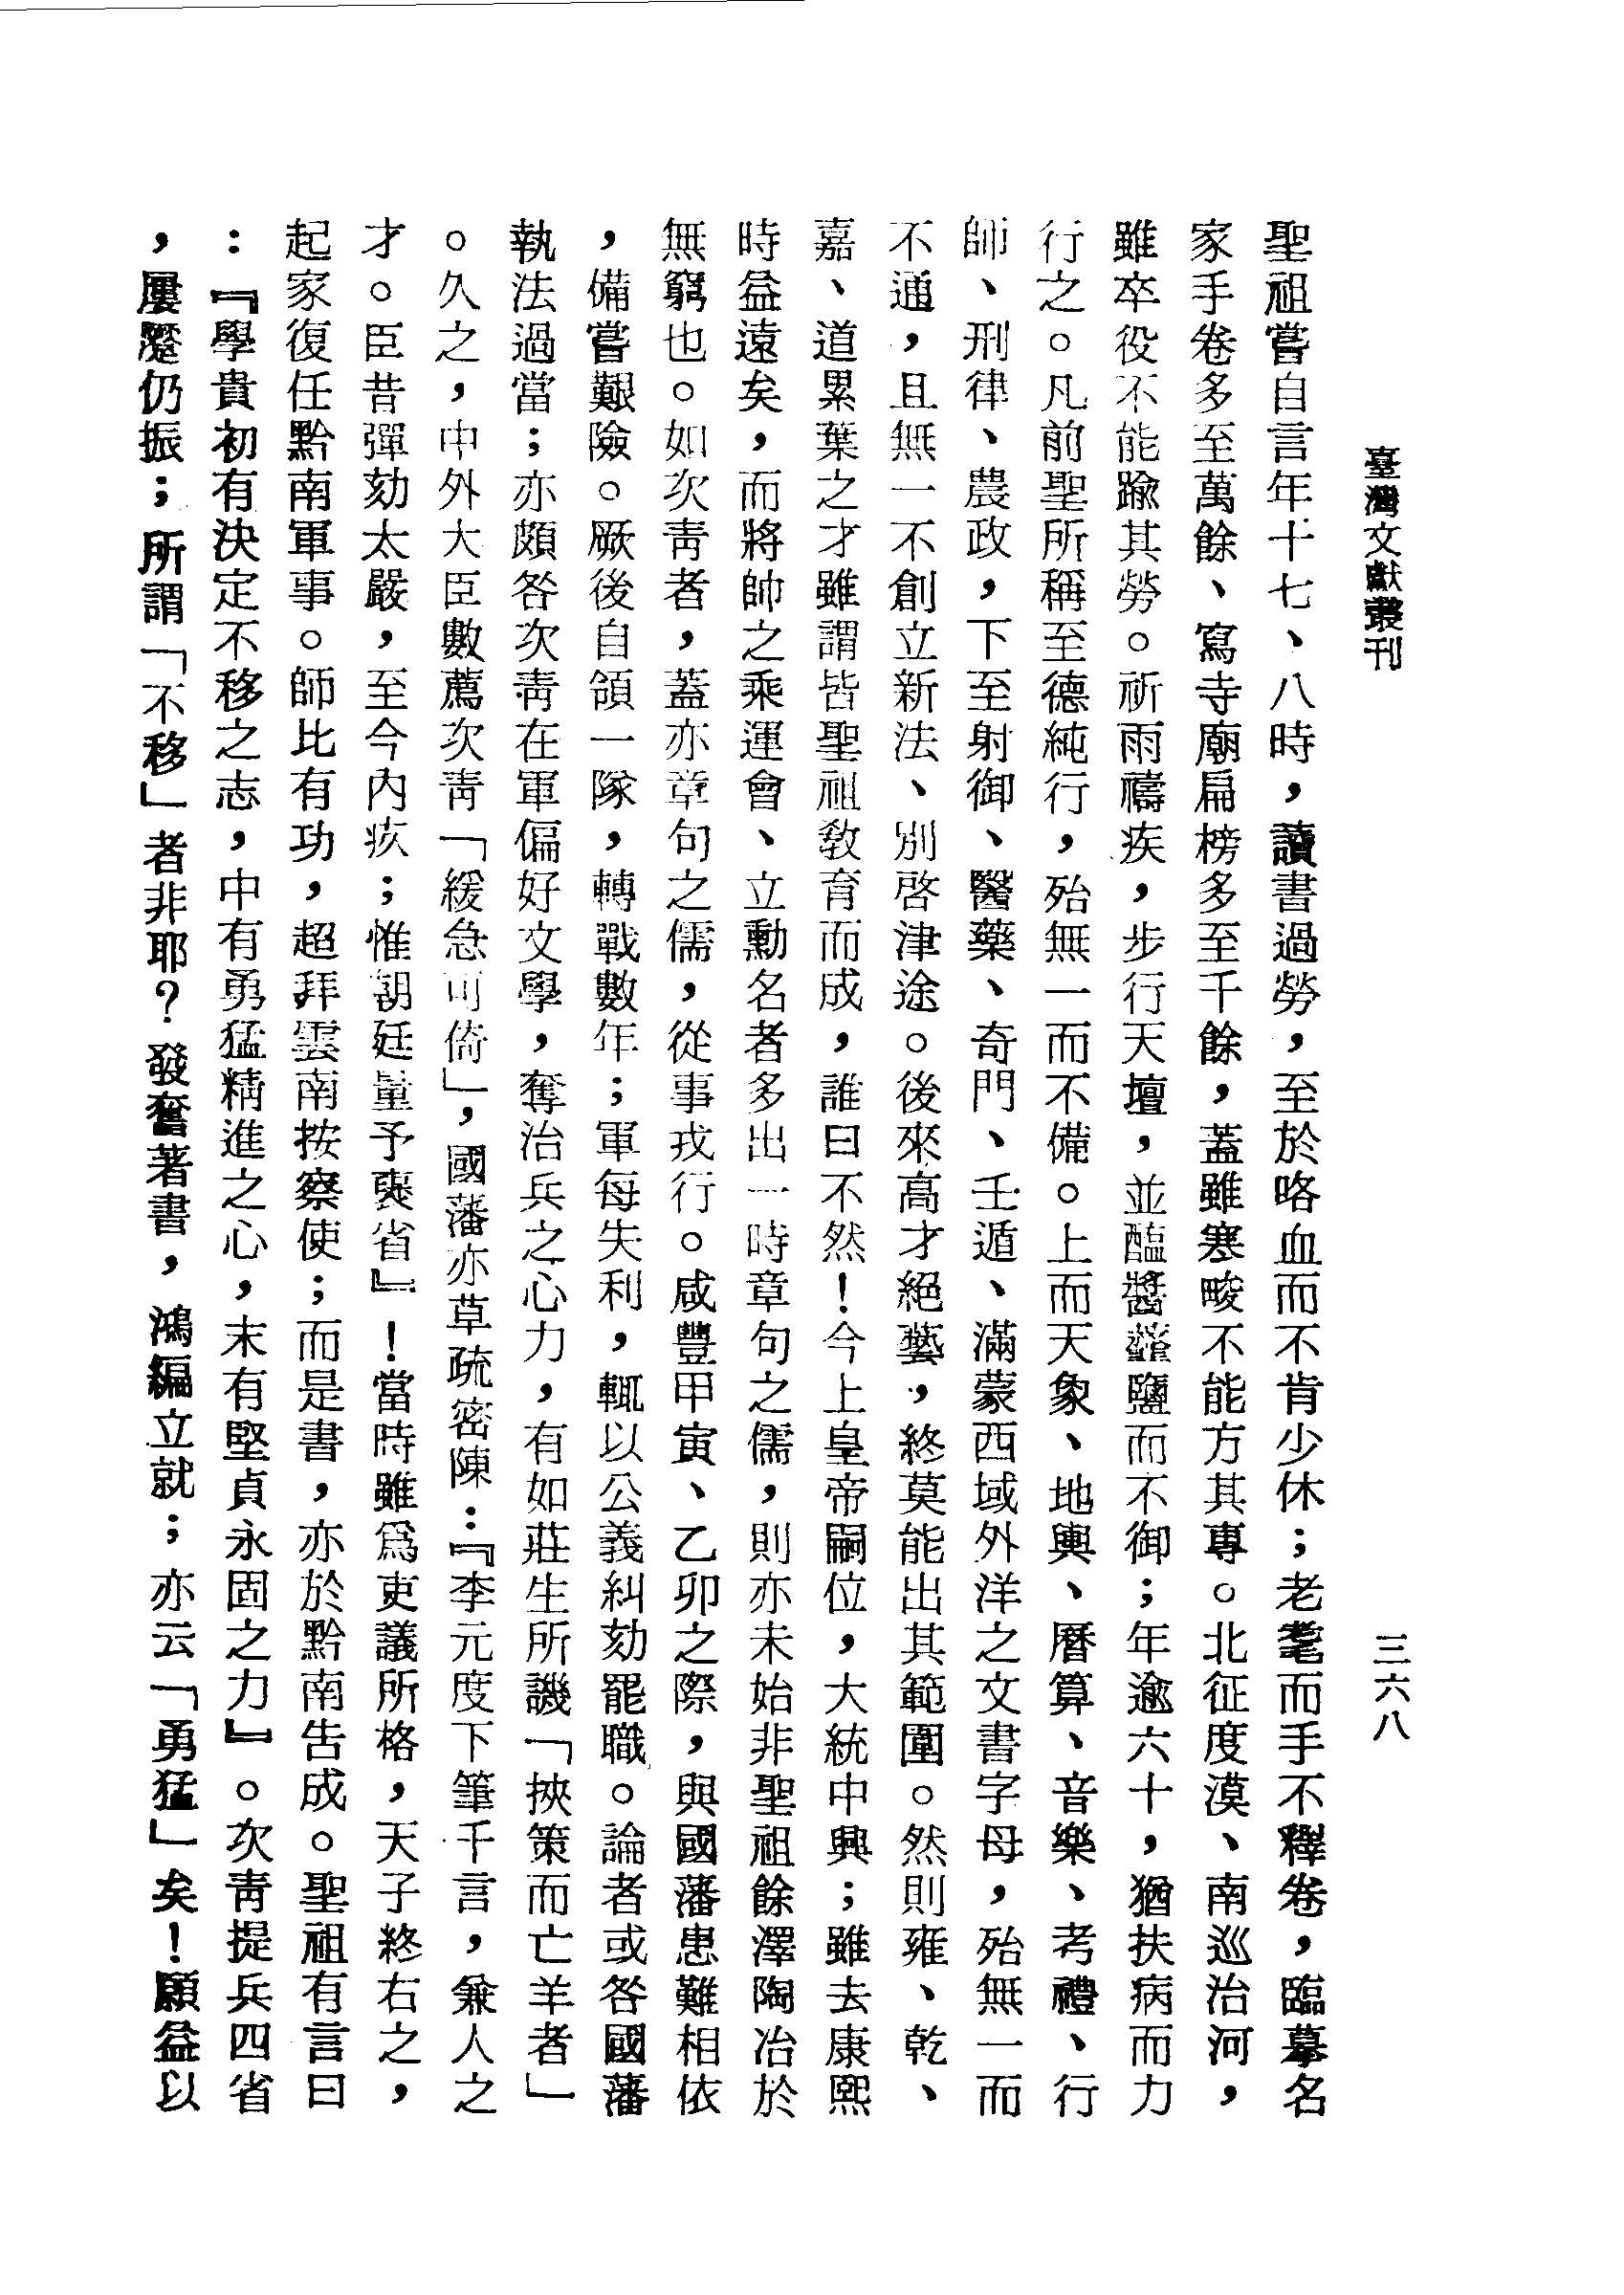 臺灣文獻叢刊
三六八
聖祖嘗自言年十七、八時，讀書過勞，至於咯血而不肯少休；老耄而手不釋卷，臨摹名
家手卷多至萬餘、寫寺廟扁榜多至千餘，蓋雖寒畯不能方其專。北征度漠、南巡治河，
雖卒役不能踰其勞。祈雨禱疾，步行天壇，並醢醬虀鹽而不御；年逾六十，猶扶病而力
行之。凡前聖所稱至德純行，殆無一而不備。上而天象、地輿、曆算、音樂、考禮、行
師、刑律、農政，下至射御、醫藥、奇門、壬遁、滿蒙西域外洋之文書字母，殆無一而
不通，且無一不創立新法、別啓津途。後來高才絕藝，終莫能出其範圍。然則雍、乾、
嘉、道累葉之才雖謂皆聖祖敎育而成，誰曰不然！今上皇帝嗣位，大統中興；雖去康熙
時益遠矣，而將帥之乘運會、立勳名者多出一時章句之儒，則亦未始非聖祖餘澤陶冶於
無窮也。如次靑者，蓋亦章句之儒，從事戎行。咸豐甲寅、乙卯之際，與國藩患難相依
，備嘗艱險。厥後自領一隊，轉戰數年；軍每失利，輒以公義糾劾罷職。論者或咎國藩
執法過當；亦頗咎次靑在軍偏好文學，奪治兵之心力，有如莊生所譏「挾策而亡羊者」
。久之，中外大臣數薦次靑「緩急可倚」，國藩亦草疏密陳：『李元度下筆千言，兼人之
才。臣昔彈劾太嚴，至今內疚；惟朝廷量予奬省』！當時雖爲吏議所格，天子終右之，
起家復任黔南軍事。師比有功，超拜雲南按察使；而是書，亦於黔南告成。聖祖有言曰
：『學貴初有決定不移之志，中有勇猛精進之心，末有堅貞永固之力』。次靑提兵四省
，屢蹶仍振；所謂「不移」者非耶？發奮著書，鴻編立就；亦云「勇猛」矣！願益以